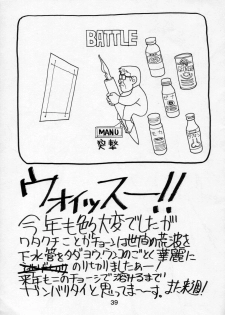 BATTLE
MANU
突撃
ウォイッスー!!
今年も色々大変でしたが
ワタクチことがチョンは世間の荒波を
下水管をタダヨウウンコのごとく華麗に
のりきりましたぁー!
来年もこのチョーシで溶けるまで
ガンバリタイと思ってまーす。また来週!
39